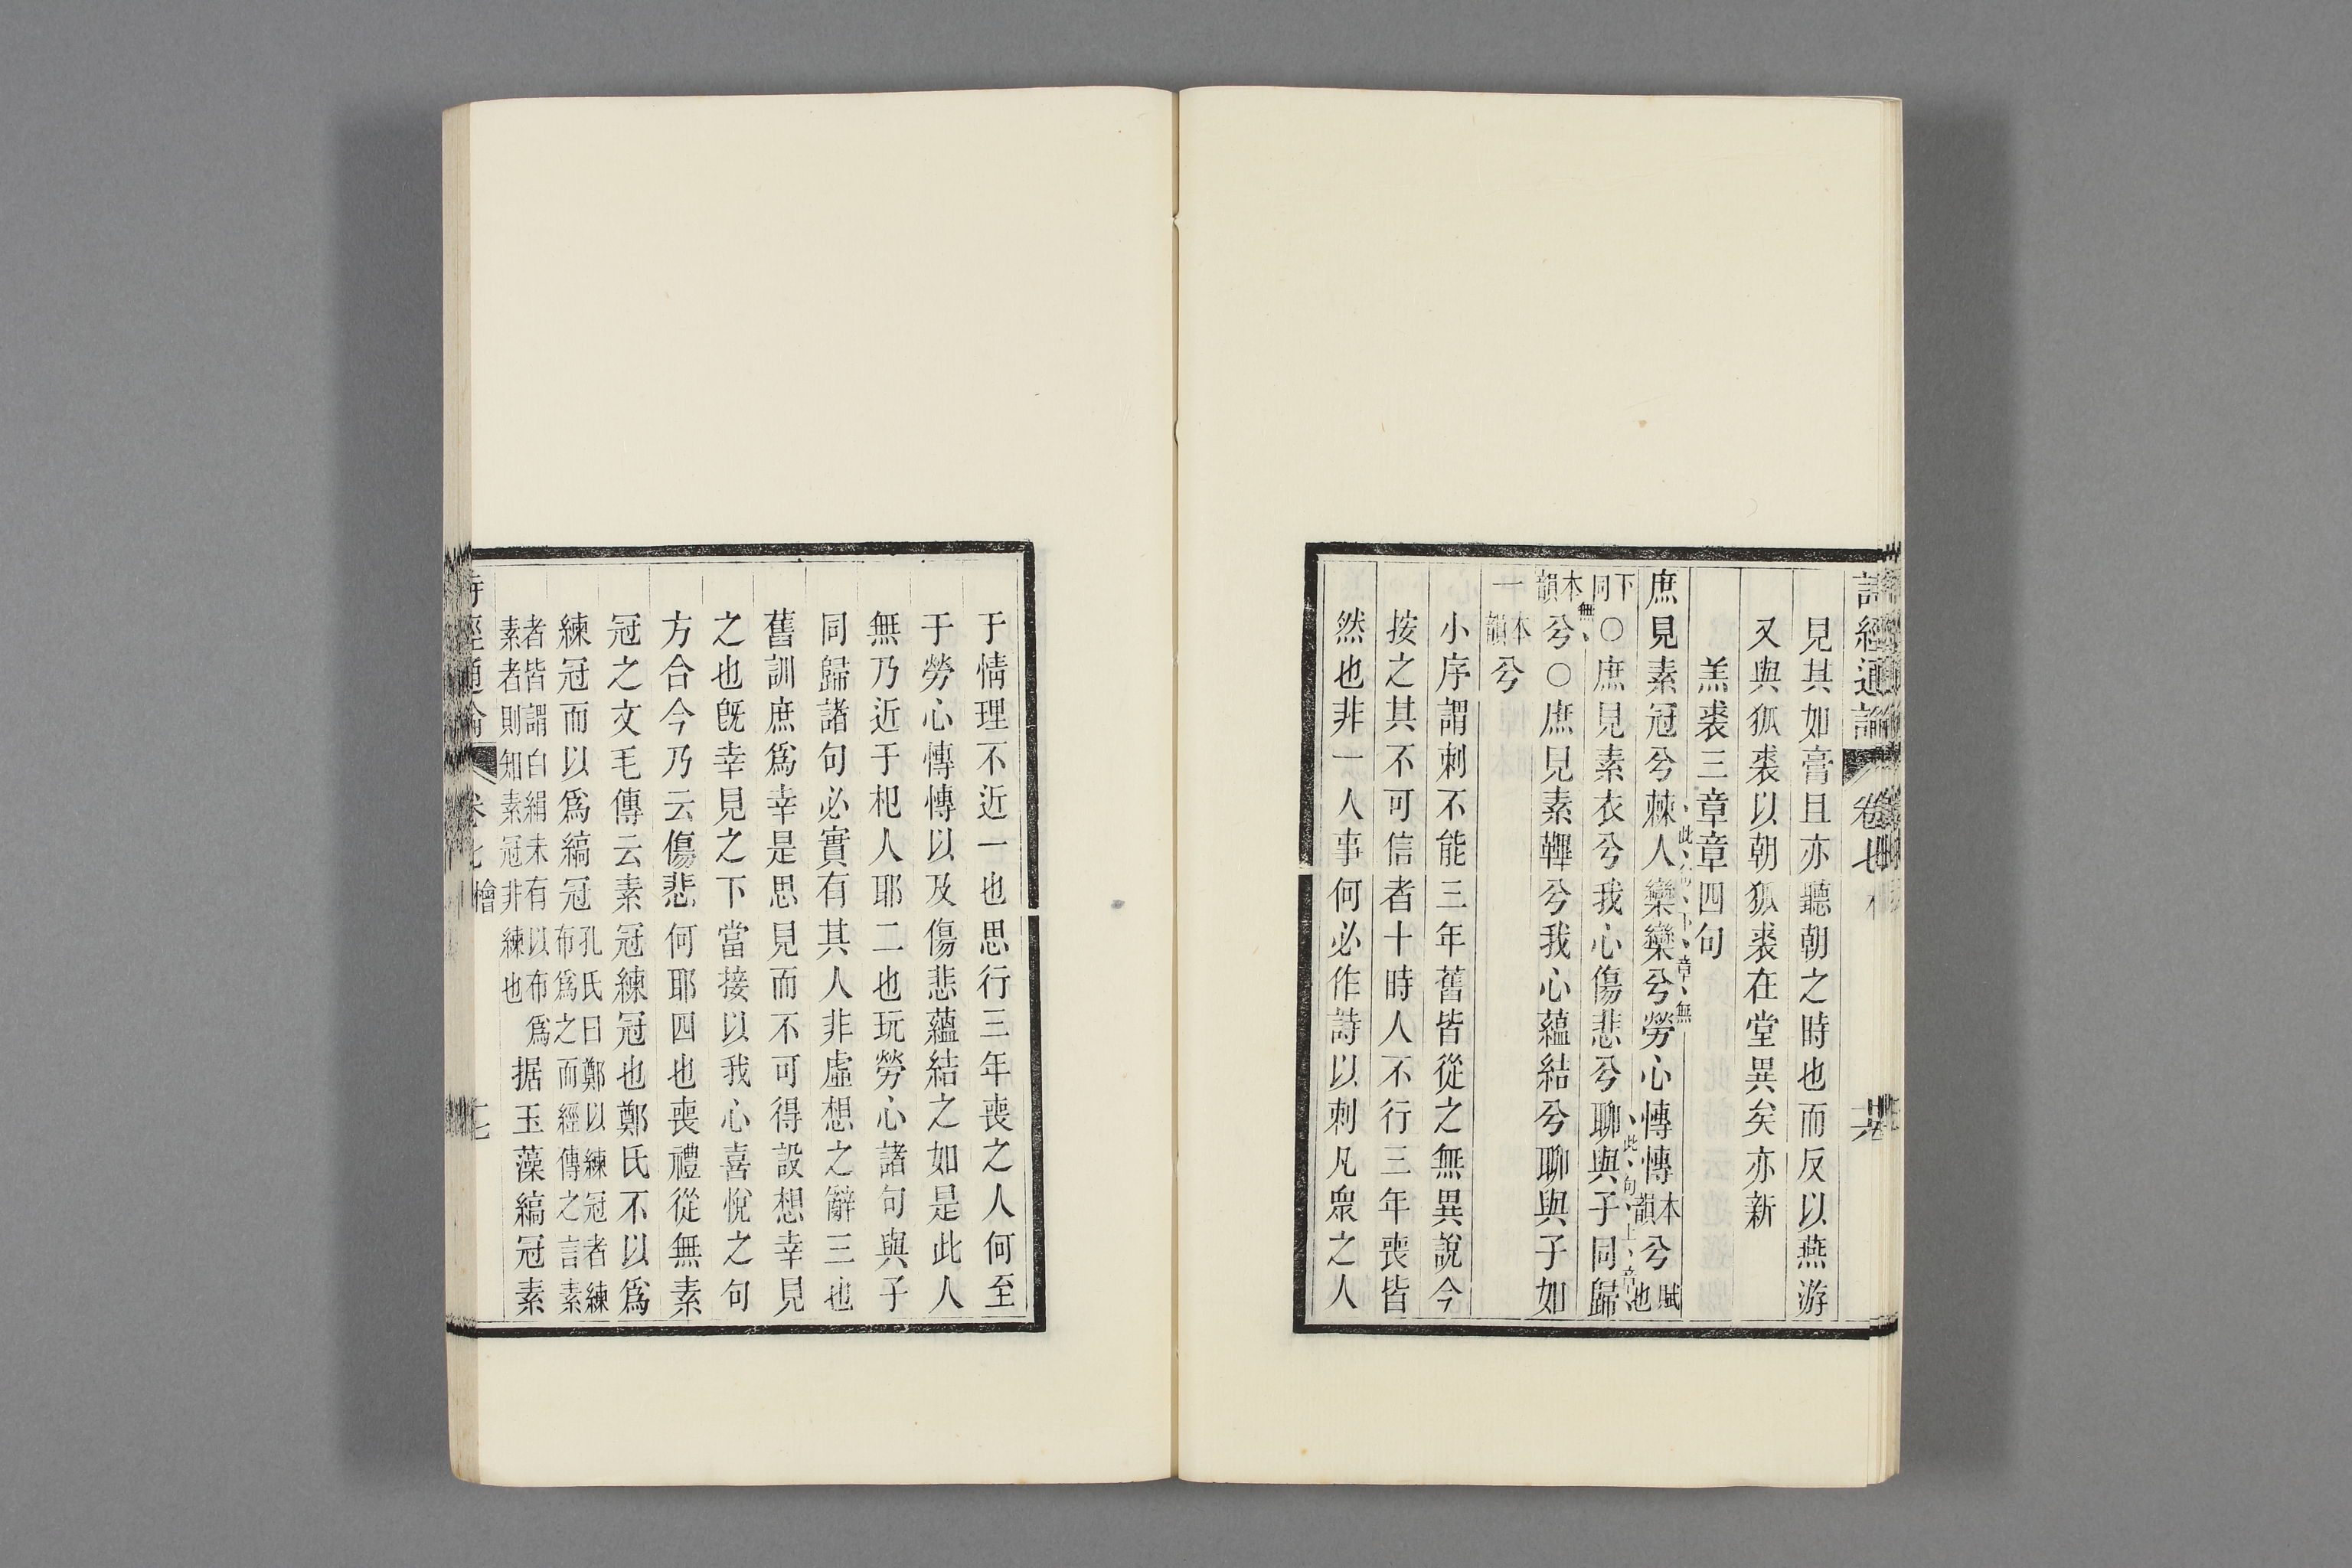 詩經通論 卷七 六
見其如膏且亦聽朝之時也而反以燕游
又與狐裘以朝狐裘在堂異矣亦新
羔裘三章章四句
庶見素冠兮棘人欒欒兮勞心慱慱本韻兮賦也
下同○庶見素衣兮我心傷悲兮聊與子同歸
本韻兮○庶見素韠兮我心蘊結兮聊與子如
一本韻兮
小序謂刺不能三年舊皆從之無異說今
按之其不可信者十時人不行三年喪皆
然也非一人事何必作詩以刺凡衆之人
于情理不近一也思行三年喪之人何至
于勞心慱慱以及傷悲蘊結之如是此人
無乃近于杞人耶二也玩勞心諸句與子
同歸諸句必實有其人非虛想之辭三也
舊訓庶爲幸是思見而不可得設想幸見
之也旣幸見之下當接以我心喜悅之句
方合今乃云傷悲何耶四也喪禮從無素
冠之文毛傳云素冠練冠也鄭氏不以爲
練冠而以爲縞冠孔氏曰鄭以練冠者練布爲之而經傳之言素
者皆謂白絹未有以布爲素者則知素冠非練也据玉藻縞冠素
檜